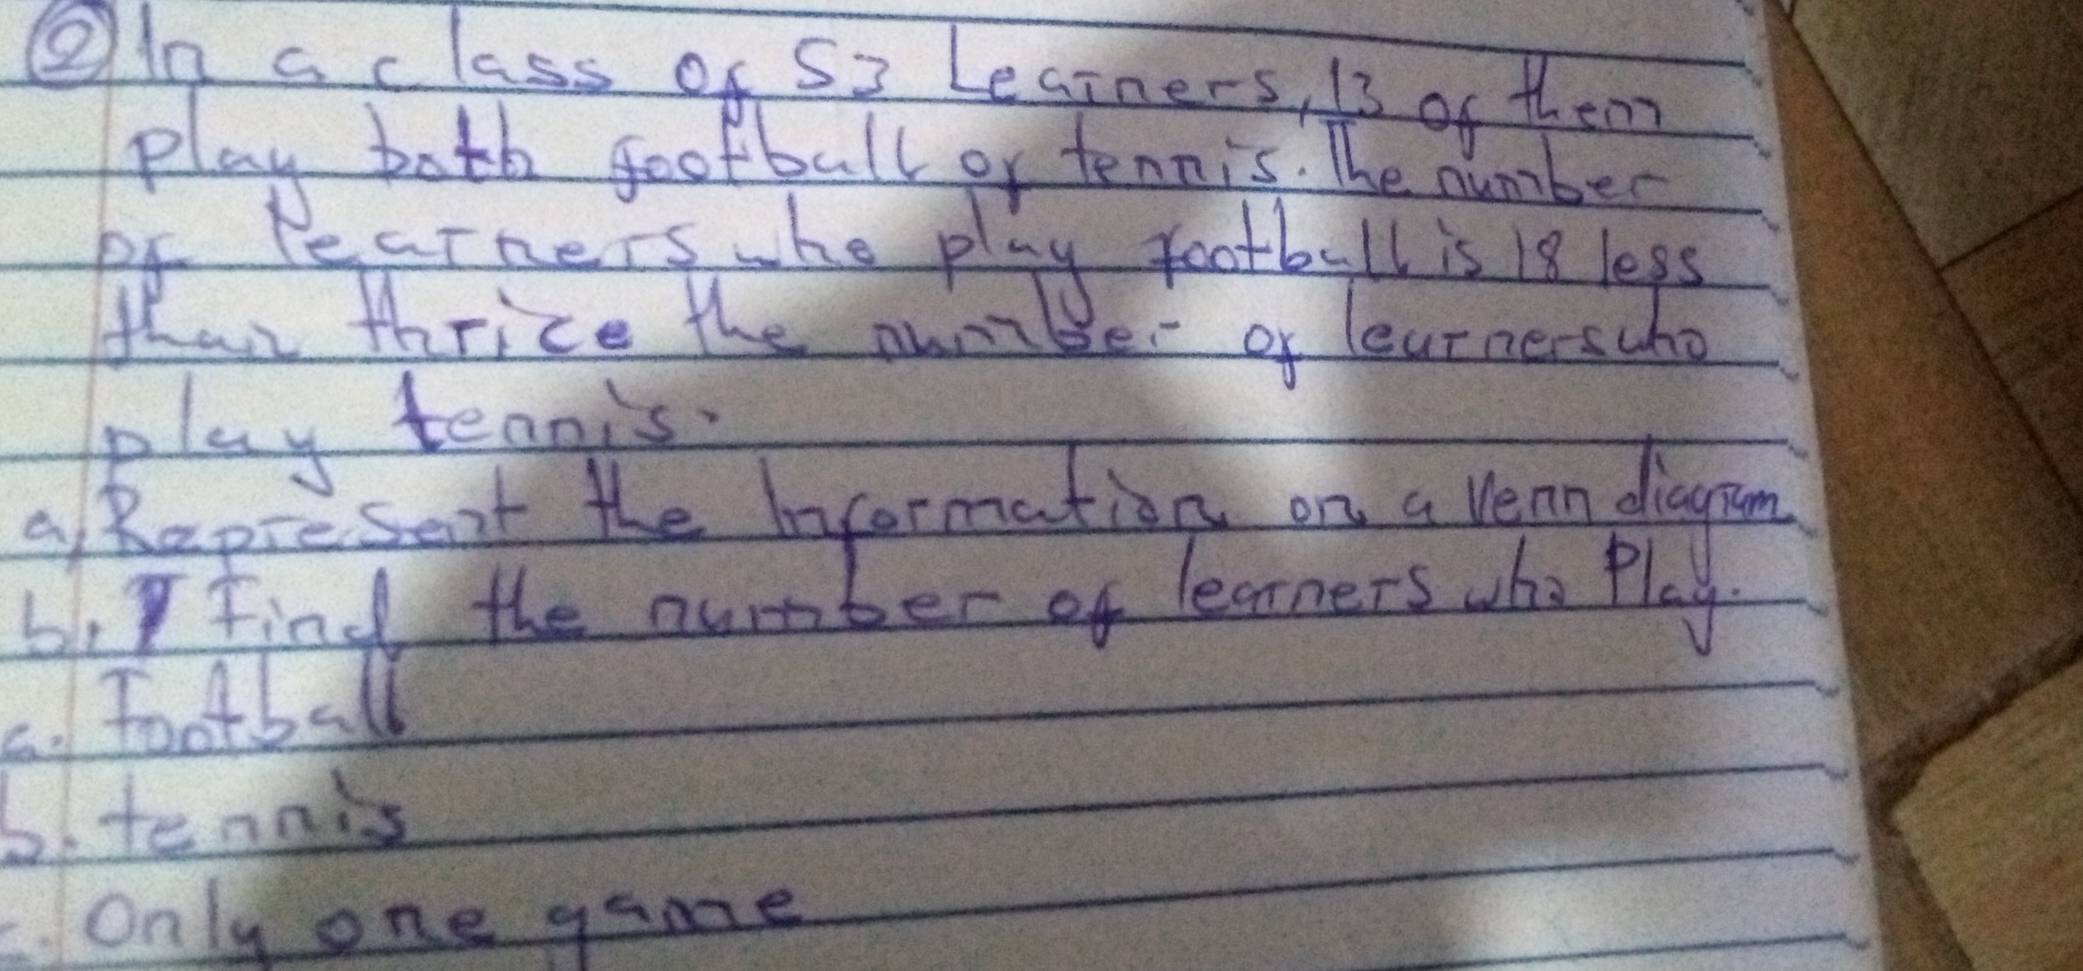 ② In a class of 53 Learners, 13 of them
play both football or tennis. The number
of learners who play football is 18 less
than thrice the number of learners who
play tennis.
a, Represent the Information on a Venn diagram
b, Find the number of learners who Play.
a. Football
b. tennis
c. Only one game